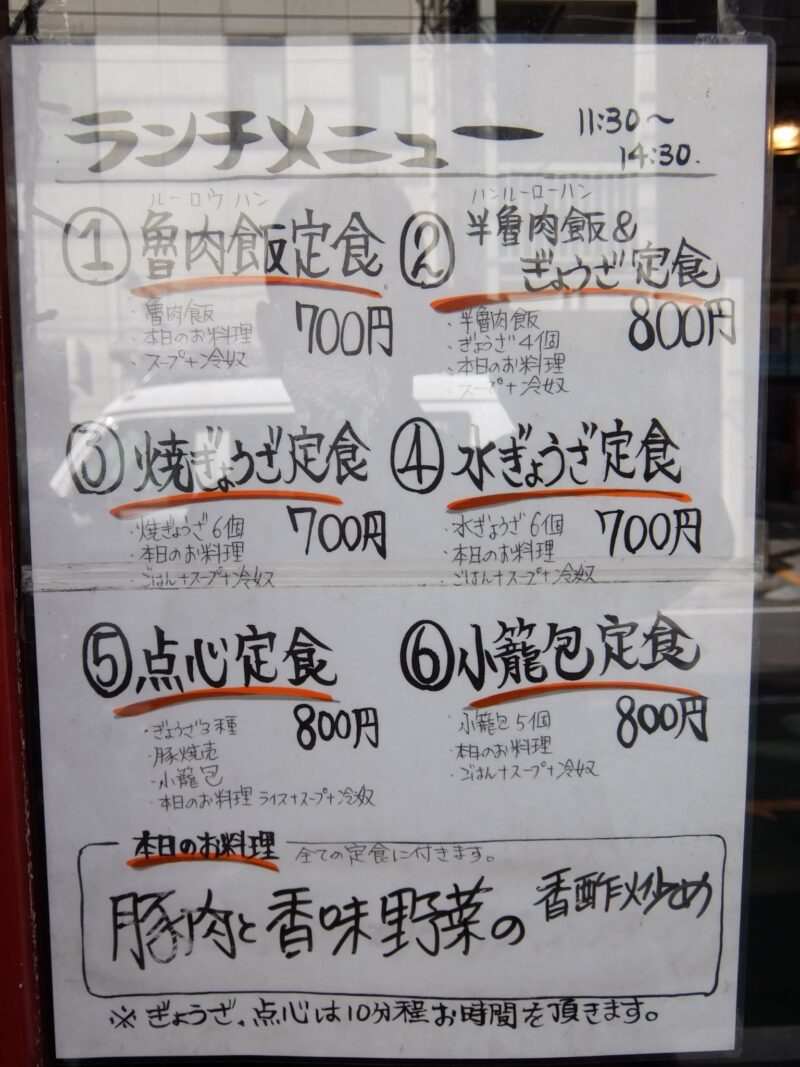 ランチメニュー
11:30〜
14:30.
ルーロウハン
① 魯肉飯定食
・魯肉飯
・本日のお料理
・スープ+冷奴
700円
ハンルーローハン
② 半魯肉飯&
ぎょうざ定食
・半魯肉飯
・ぎょうざ4個
・本日のお料理
・スープ+冷奴
800円
③ 焼ぎょうざ定食
・焼ぎょうざ6個
・本日のお料理
・ごはん+スープ+冷奴
700円
④ 水ぎょうざ定食
・水ぎょうざ6個
・本日のお料理
・ごはん+スープ+冷奴
700円
⑤ 点心定食
・ぎょうざ3種
・豚焼売
・小籠包
・本日のお料理 ライス+スープ+冷奴
800円
⑥ 小籠包定食
・小籠包5個
・本日のお料理
・ごはん+スープ+冷奴
800円
本日のお料理 全ての定食に付きます。
豚肉と香味野菜の香酢炒め
※ぎょうざ、点心は10分程お時間を頂きます。